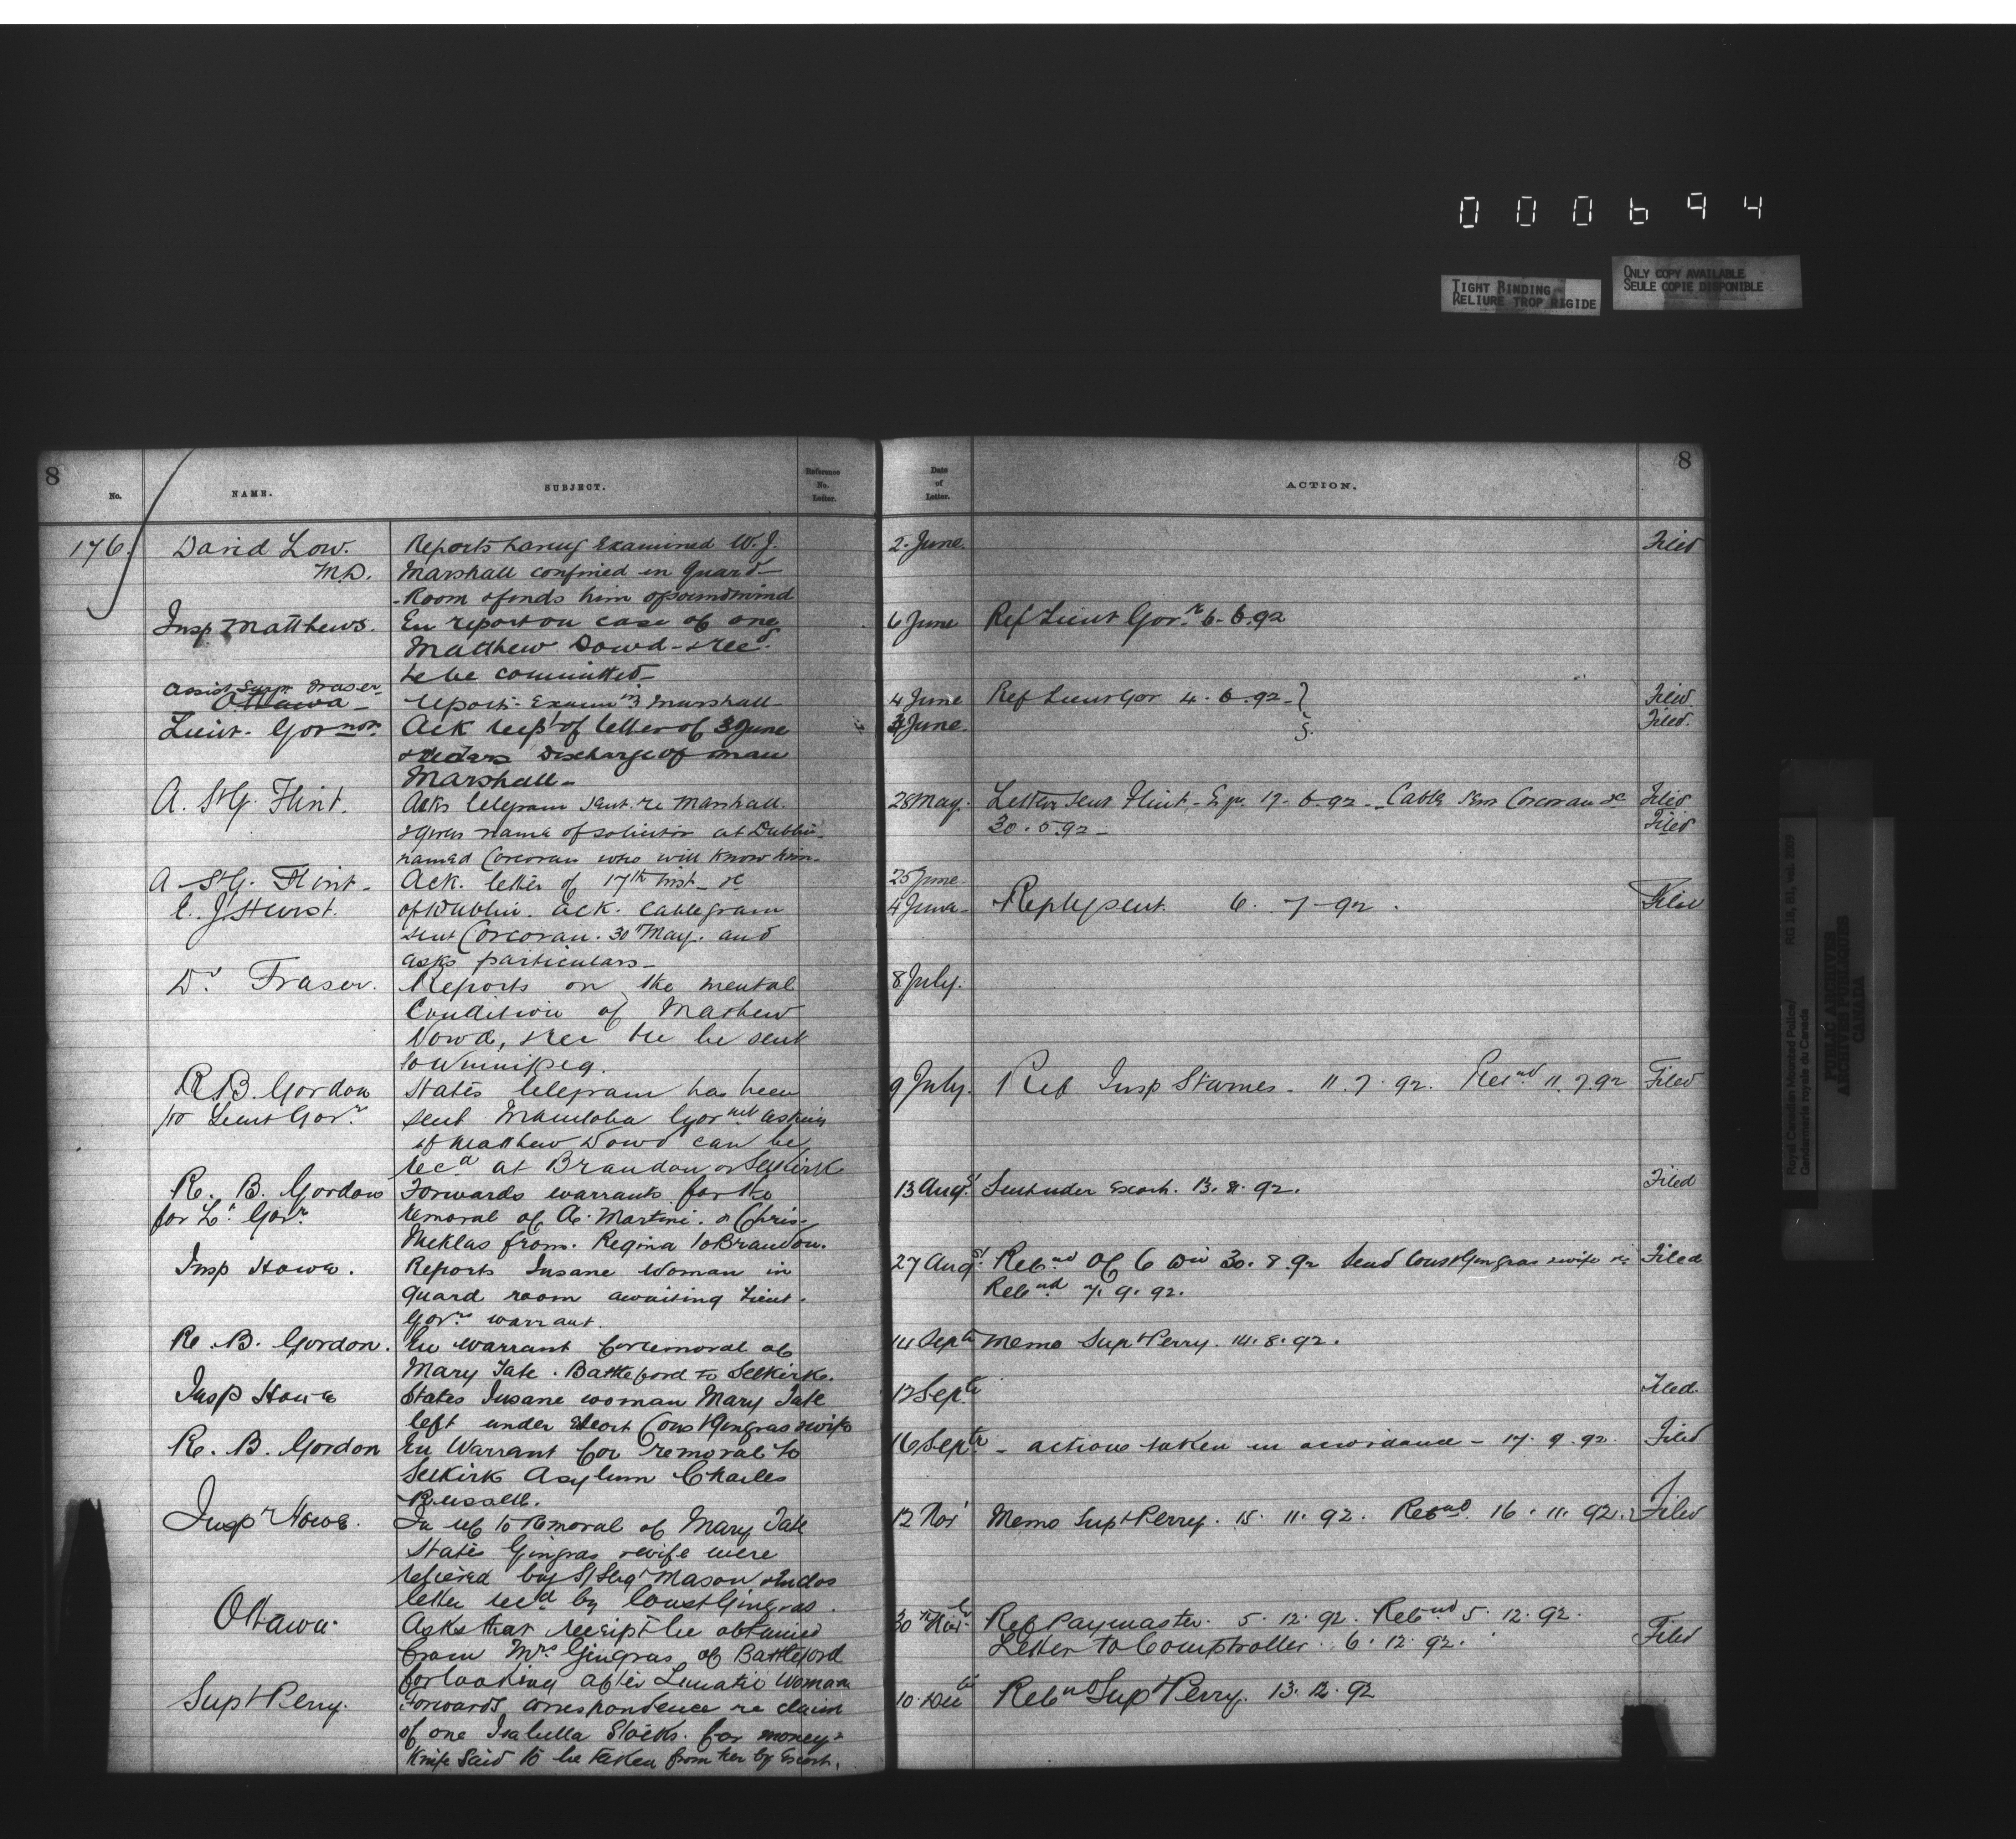 000694
TIGHT BINDING
RELIURE TROP RIGIDE
ONLY COPY AVAILABLE
SEULE COPIE DISPONIBLE
8
8
No. NAME. SUBJECT. Reference No. Letter. Date of Letter. ACTION.
176. David Low. Reports having Examined W. J. 2. June. Filed
M.D. Marshall confined in Guard
Room & finds him of sound mind
Insp Matthews. En report on case of one 6 June Ref Lieut Govr. 6-6.92
Matthew Dowd - & recd.
to be committed
Assist Surgn Fraser
Ottawa report Examin Marshall 4 June Ref Lieut Gov 4. 6.92 Filed
Lieut. Govrnor. Ack recpt of letter of 3 June 3 June. Filed.
& orders Discharge of man
Marshall
A. StG. Flint. Acks telegram sent re Marshall. 28 May. Letter sent Flint 17-6-92 - Cable Corcoran &c Filed
& gives name of solicitor at Dublin 30. 5.92 Filed
named Corcoran who will know him
A StG. Flint Ack. letter of 17th inst &c 25 June.
J. Hurst. of Dublin. ack. cablegram 4 June Reply sent. 6. 7-92. Filed
sent Corcoran. 30 May. and
asks particulars
Dr Fraser. Reports on the mental 8 July.
Condition of Mathew
Dowd, & rec he be sent
to Winnipeg.
R B. Gordon States telegram has been 9 July. Ref Insp Starnes. 11. 7. 92. Retnd 11.7.92 Filed
Lieut Govr. sent Manitoba Govrnt asking
if Matthew Dowd can be
recd at Brandon or Selkirk
R. B. Gordon Forwards warrants for the 13 Augst Sent under Escort. 13. 8. 92. Filed
for Lt. Govr. removal of A. Martini. & Chris.
Meklas from. Regina to Brandon.
Insp Howe. Reports Insane Woman in 27 Augst Retnd Of C Div 30. 8. 92 Send Const Gingras & wife Filed
Guard room awaiting Lieut. Retnd 7. 9. 92.
Govrs warrant.
R. B. Gordon. En warrant for removal of 14 Sept Memo Supt Perry. 14. 8. 92.
Mary Tate. Battleford to Selkirk.
Insp Howe States Insane woman Mary Tate 12 Sept Filed.
left under Escort Const Gingras & wife
R. B. Gordon En Warrant for removal to 16 Sept - action taken in accordance - 17. 9. 92. Filed
Selkirk Asylum Charles
Russell.
Inspr Howe. In ref to removal of Mary Tate 12 Nov Memo Supt Perry. 15. 11. 92. Retnd. 16. 11. 92. Filed
States Gingras & wife were
relieved by S/Sergt Mason & Encloses
letter recd by Const Gingras.
Ottawa. Asks that receipt be obtained 30 Nov Ref Paymaster. 5. 12. 92. Retnd 5. 12. 92.
from Mrs Gingras of Battleford Letter to Comptroller. 6. 12. 92. Filed
for looking after Lunatic Woman
Supt Perry. Forwards correspondence re claim 10. Dec Retnd Supt Perry. 13. 12. 92
of one Isabella for money &
Knife Said to be taken from her by Escort.
Royal Canadian Mounted Police/
Gendarmerie royale du Canada
RG 18, B1, vol. 2009
PUBLIC ARCHIVES
ARCHIVES PUBLIQUES
CANADA